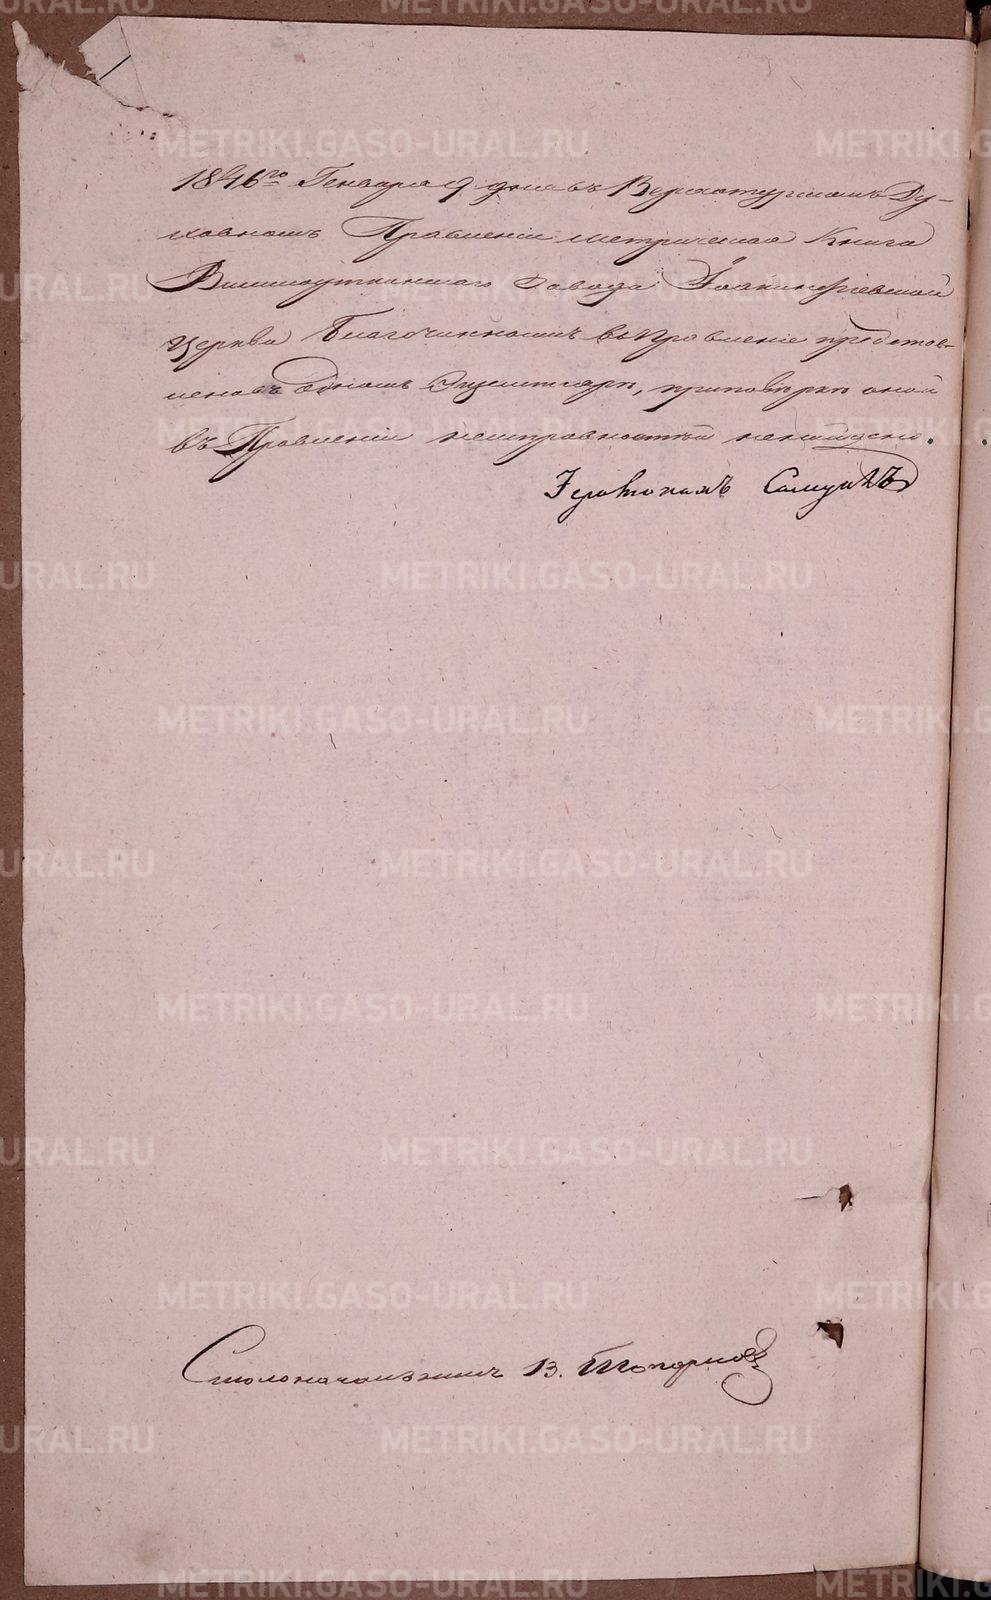 1846го Генваря 9 дня въ Верхотурскомъ Ду-
ховномъ Правленіи метрическая Книга
Висимоуткинскаго Завода
Церкви Благочиннымъ въ Правленіе представ-
лена въ одномъ Экземпляре, приповѣрке оной
въ Правленіи неисправностей ненайдено.
Іеромонахъ Самуилъ
Столоначальникъ В. Топорковъ
METRIKI.GASO-URAL.RU